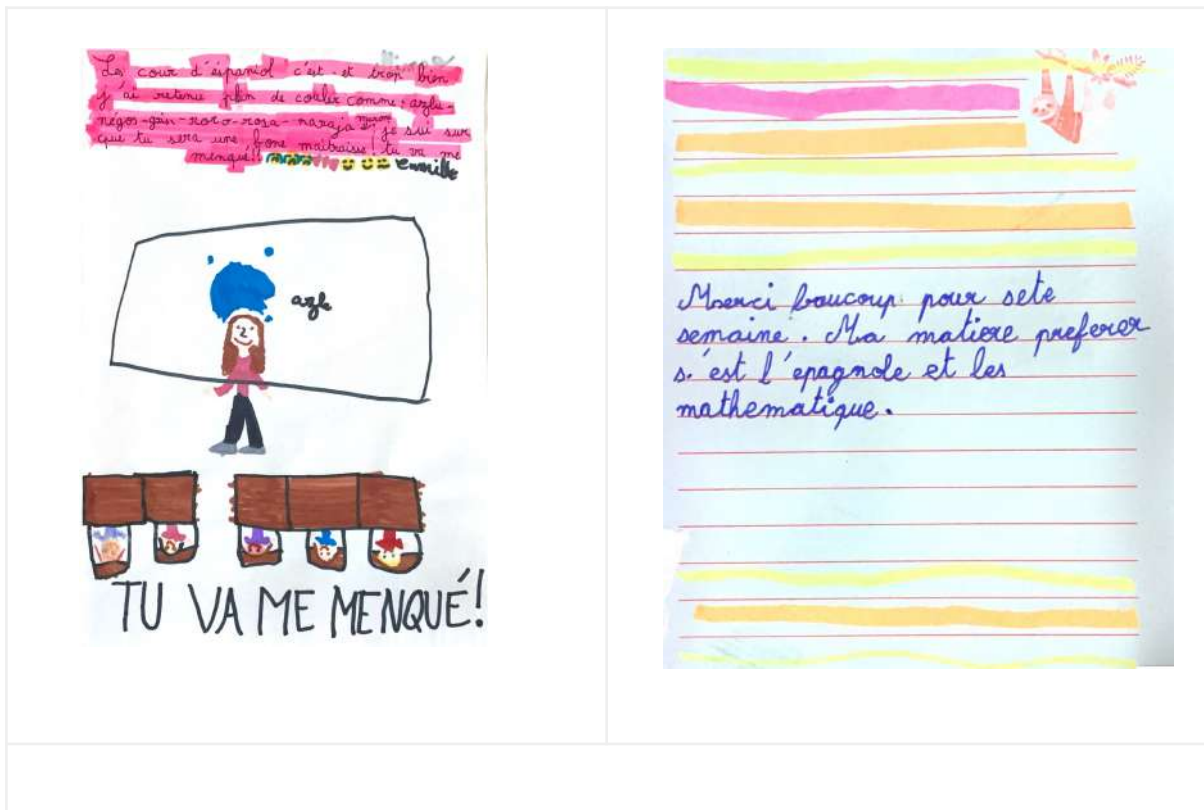 Les cour d'éspaniol c'est et trop bien
j'ai retenue plin de couler comme : azlu-
négos-grin-roro-rosa-naraja marone! je sui sur
que tu sera une bone maitraise! tu va me
menqué!!
azle
TU VA ME MENQUÉ!
Merci baucoup pour sete
semaine. Ma matiere preferer
s'est l'epagnole et les
mathematique.